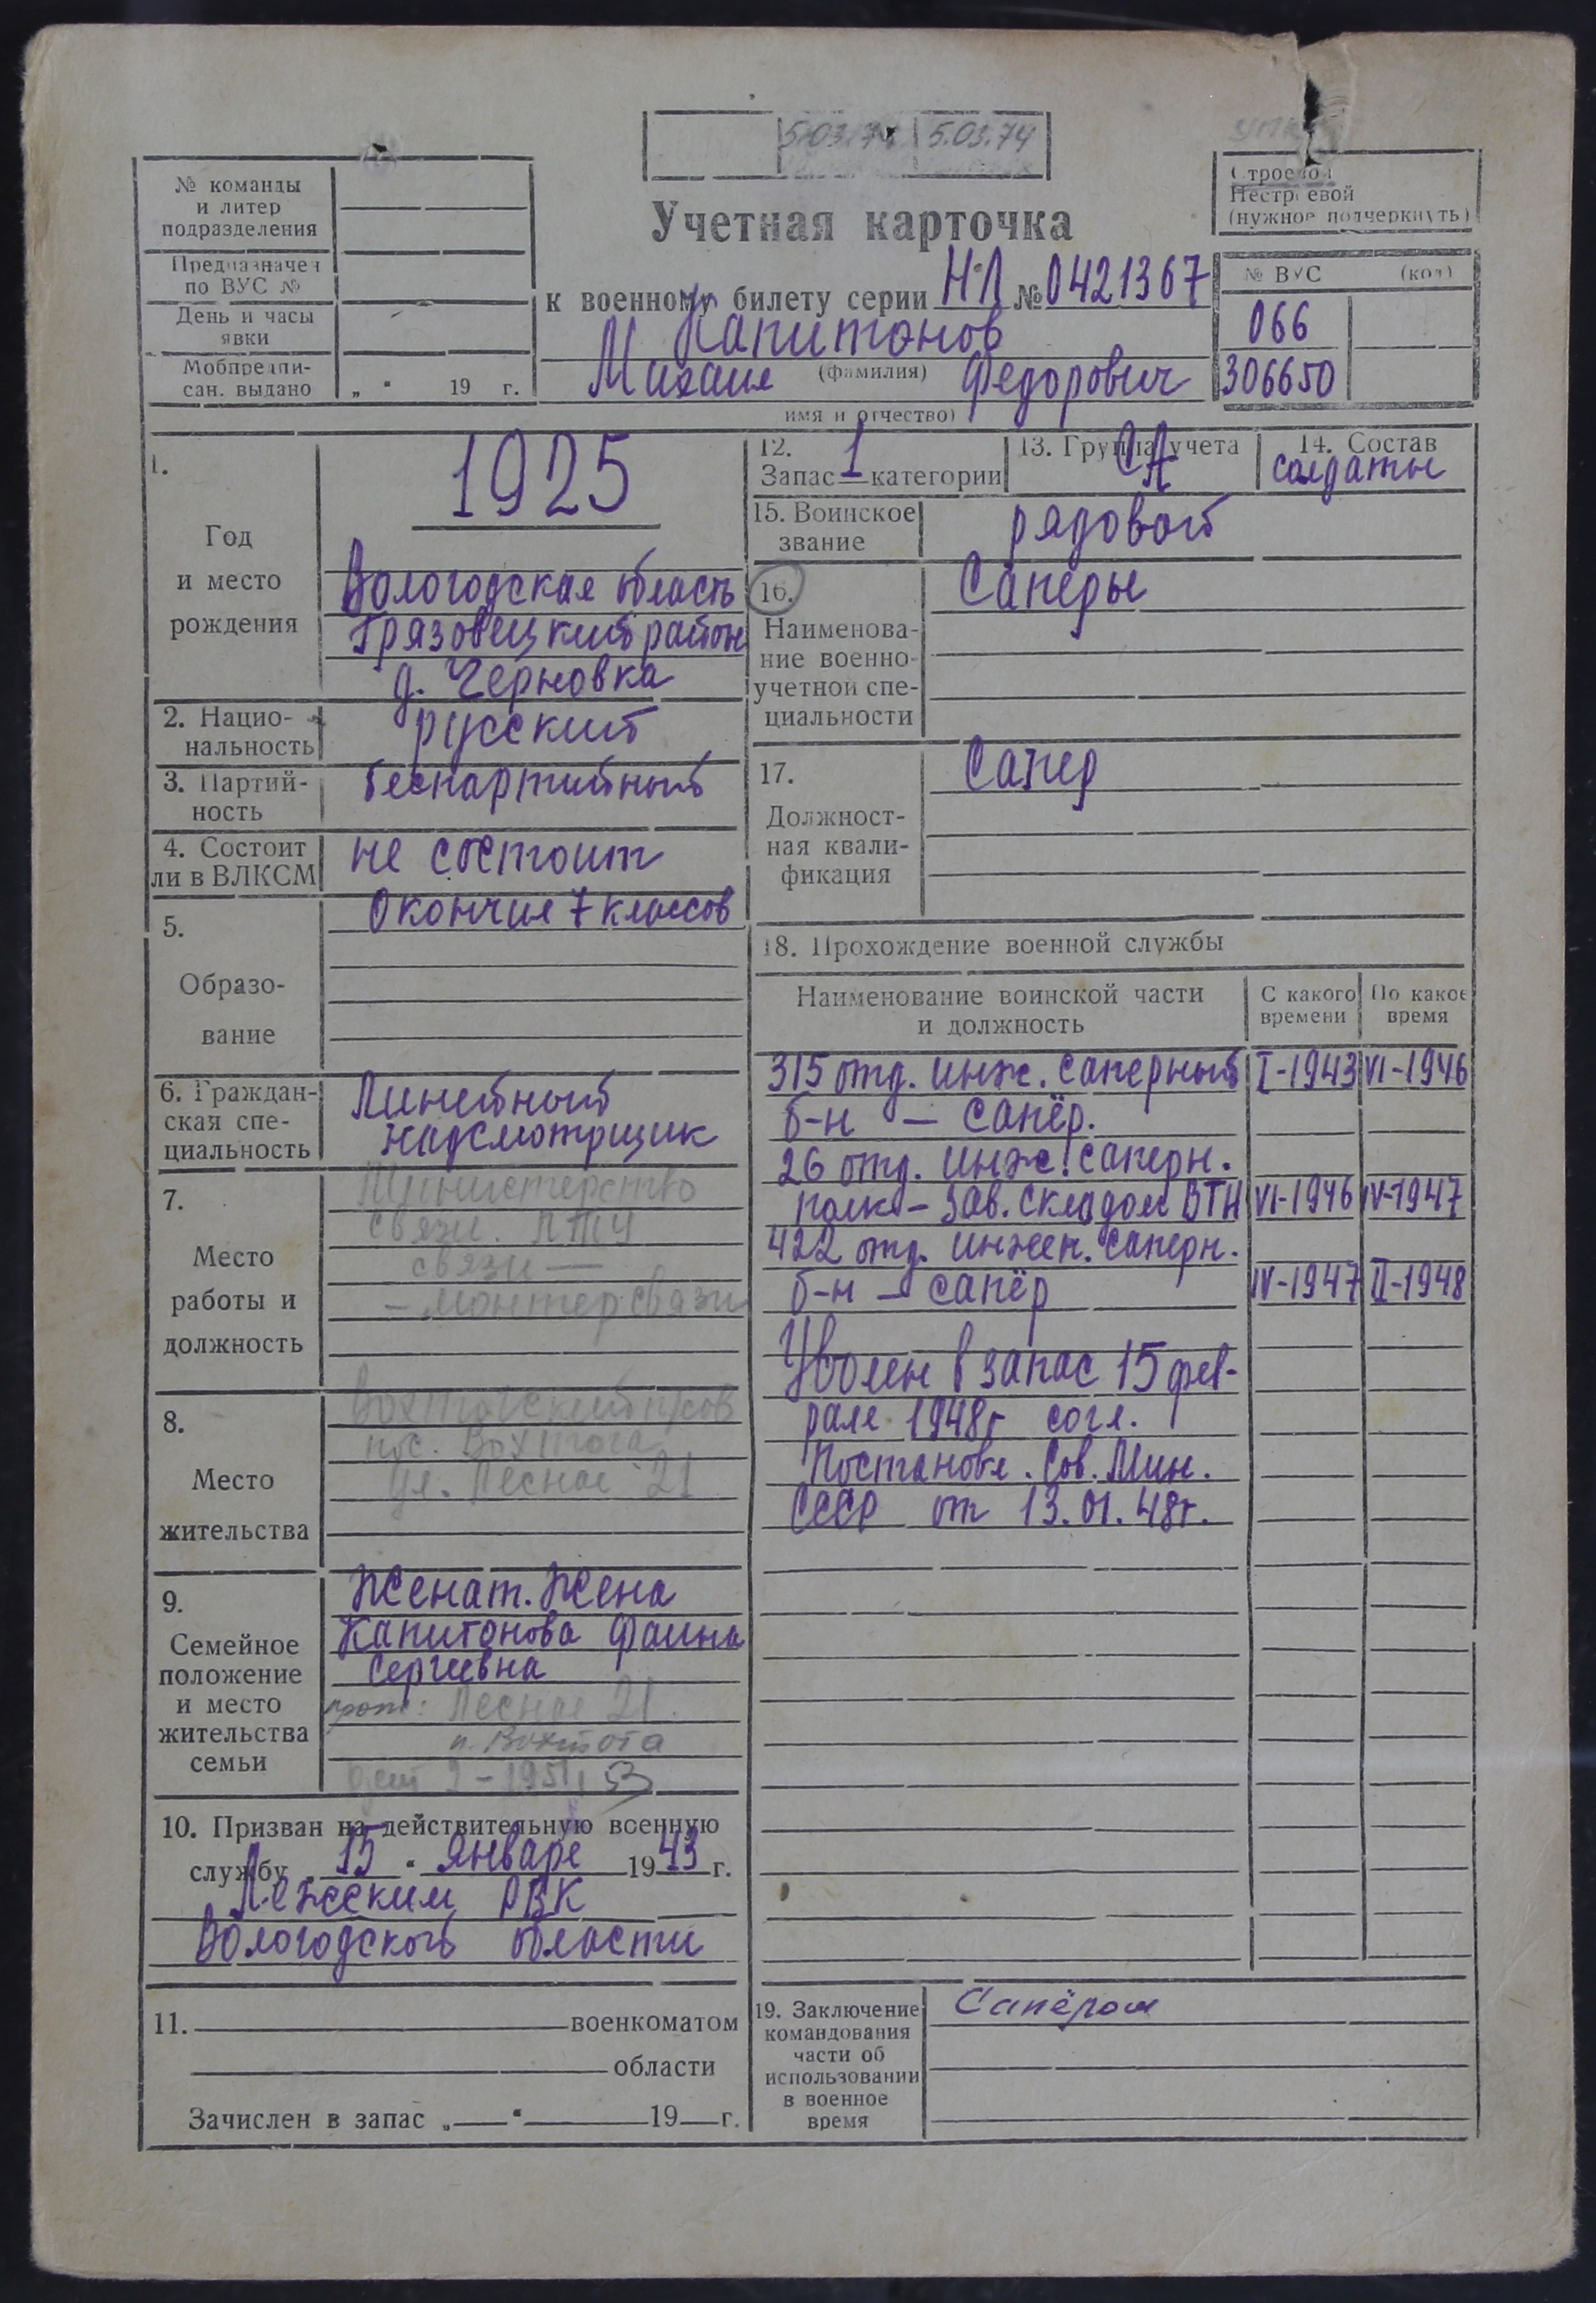 5.03.74 5.03.74
№ команды
и литер
подразделения
Предназначен
по ВУС №
День и часы
явки
Мобпредпи-
сан. выдано „ “ 19 г.
Строевой
Нестроевой
(нужное подчеркнуть)
Учетная карточка
к военному билету серии НЛ № 0421367
Капитонов
(фамилия)
Михаил Федорович
имя и отчество)
№ ВУС (код)
066
306650
1.
Год
и место
рождения
1925
Вологодская область
Грязовецкий район
д. Черновка
2. Нацио-
нальность
русский
3. Партий-
ность
беспартийный
4. Состоит
ли в ВЛКСМ
не состоит
5.
Образо-
вание
Окончил 7 классов
6. Граждан-
ская спе-
циальность
Линейный
надсмотрщик
7.
Место
работы и
должность
Министерство
связи. ЛТУ
связи —
– монтер связи
8.
Место
жительства
пос. Вохтога
ул. Лесная 21
9.
Семейное
положение
и место
жительства
семьи
Женат. Жена
Капитонова Фаина
Сергеевна
прож: Лесная 21.
п. Вохтога
10. Призван на действительную военную
службу „ 15 “ января 1943 г.
Лежским РВК
Вологодской области
11. военкоматом
области
Зачислен в запас „ “ 19 г.
12.
Запас 1 категории
13. Группа учета
СА
14. Состав
солдаты
15. Воинское
звание
рядовой
16.
Наименова-
ние военно-
учетной спе-
циальности
Саперы
17.
Должност-
ная квали-
фикация
Сапер
18. Прохождение военной службы
Наименование воинской части
и должность
С какого
времени
По какое
время
315 отд. инж. саперный I-1943 VI-1946
б-н – сапёр.
26 отд. инж. саперн.
полк – зав. складом ВТИ VI-1946 IV-1947
422 отд. инжен. саперн.
б-н – сапёр IV-1947 II-1948
Уволен в запас 15 фев-
раля 1948г согл.
Постановл. Сов. Мин.
СССР от 13.01.48г.
19. Заключение
командования
части об
использовании
в военное
время
Сапёром